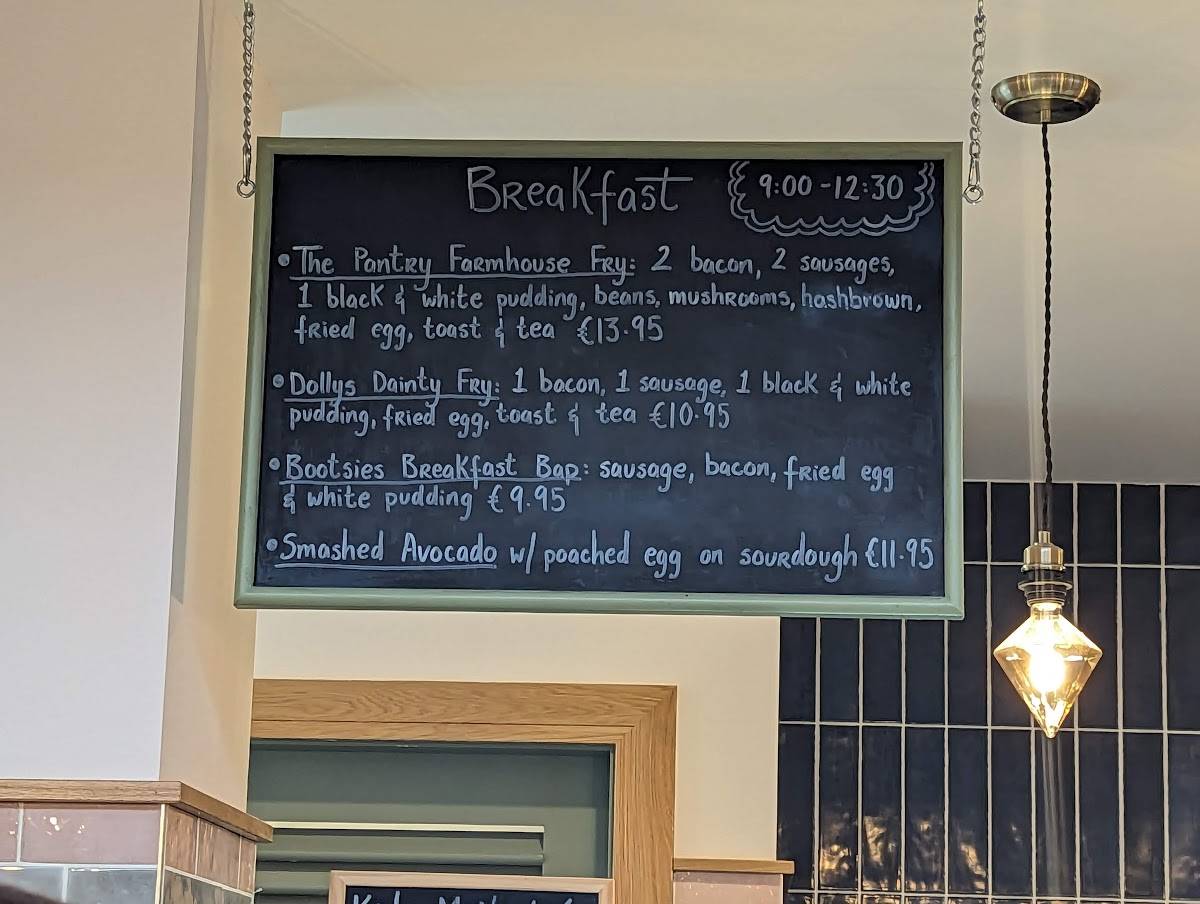 Breakfast
9:00-12:30
• The Pantry Farmhouse Fry: 2 bacon, 2 sausages,
1 black & white pudding, beans, mushrooms, hashbrown,
fried egg, toast & tea €13.95
• Dollys Dainty Fry: 1 bacon, 1 sausage, 1 black & white
pudding, fried egg, toast & tea €10.95
• Bootsies Breakfast Bap: sausage, bacon, fried egg
& white pudding €9.95
• Smashed Avocado w/ poached egg on sourdough €11.95